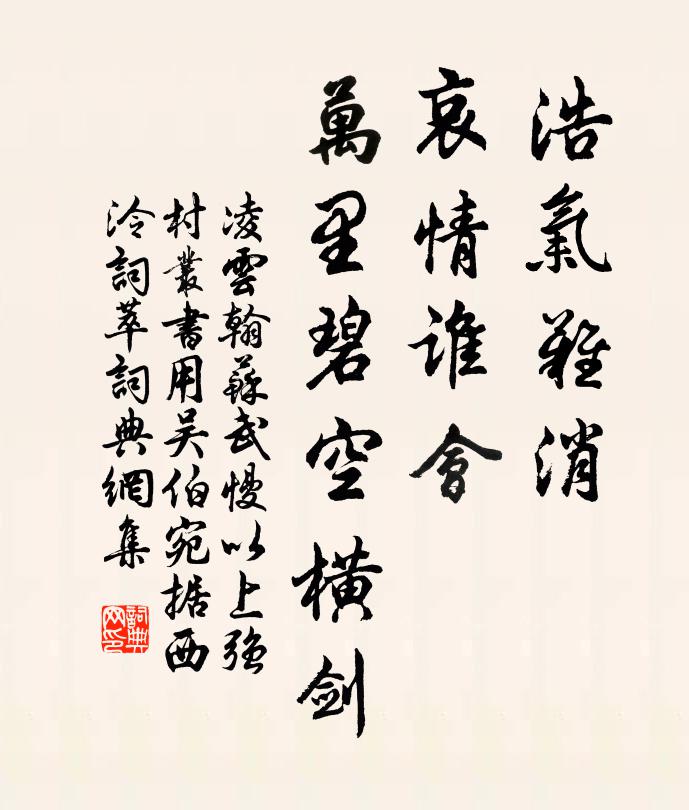 浩氣難消
哀情誰會
萬里碧空橫劍
凌雲翰蘇武慢以上強
村叢書用吴伯宛据西
泠詞萃詞典網集
詞典網印